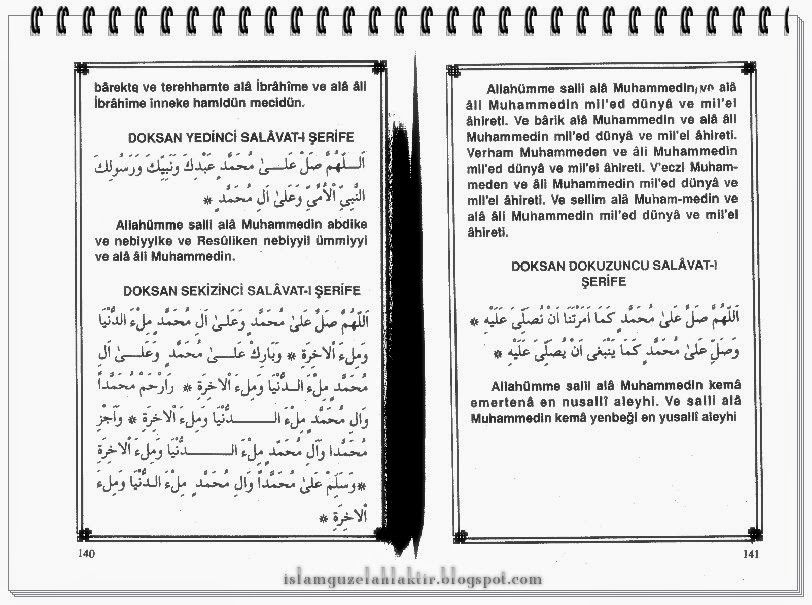 bârekte ve terehhamte alâ İbrâhîme ve alâ âli
İbrâhîme inneke hamidün mecidün.
DOKSAN YEDİNCİ SALÂVAT-I ŞERİFE
اَللّٰهُمَّ صَلِّ عَلٰى مُحَمَّدٍ عَبْدِكَ وَنَبِيِّكَ وَرَسُولِكَ
النَّبِيِّ الْاُمِّيِّ وَعَلٰى اٰلِ مُحَمَّدٍ *
Allahümme salli alâ Muhammedin abdike
ve nebiyyike ve Resûliken nebiyyil ümmiyyi
ve alâ âli Muhammedin.
DOKSAN SEKİZİNCİ SALÂVAT-I ŞERİFE
اَللّٰهُمَّ صَلِّ عَلٰى مُحَمَّدٍ وَعَلٰى اٰلِ مُحَمَّدٍ مِلْءَ الدُّنْيَا
وَمِلْءَ الْاٰخِرَةِ * وَبَارِكْ عَلٰى مُحَمَّدٍ وَعَلٰى اٰلِ
مُحَمَّدٍ مِلْءَ الدُّنْيَا وَمِلْءَ الْاٰخِرَةِ * وَارْحَمْ مُحَمَّدًا
وَاٰلِ مُحَمَّدٍ مِلْءَ الدُّنْيَا وَمِلْءَ الْاٰخِرَةِ * وَاَجْزِ
مُحَمَّدًا وَاٰلِ مُحَمَّدٍ مِلْءَ الدُّنْيَا وَمِلْءَ الْاٰخِرَةِ
* وَسَلِّمْ عَلٰى مُحَمَّدًا وَاٰلِ مُحَمَّدٍ مِلْءَ الدُّنْيَا وَمِلْءَ
الْاٰخِرَةِ *
140
Allahümme salli alâ Muhammedin ve alâ
âli Muhammedin mil'ed dünyâ ve mil'el
âhireti. Ve bârik alâ Muhammedin ve alâ âli
Muhammedin mil'ed dünyâ ve mil'el âhireti.
Verham Muhammeden ve âli Muhammedin
mil'ed dünyâ ve mil'el âhireti. V'eczi Muham-
meden ve âli Muhammedin mil'ed dünyâ ve
mil'el âhireti. Ve sellim alâ Muham-medin ve
alâ âli Muhammedin mil'ed dünyâ ve mil'el
âhireti.
DOKSAN DOKUZUNCU SALÂVAT-I
ŞERİFE
اَللّٰهُمَّ صَلِّ عَلٰى مُحَمَّدٍ كَمَا اَمَرْتَنَا اَنْ نُصَلِّىَ عَلَيْهِ *
وَصَلِّ عَلٰى مُحَمَّدٍ كَمَا يَنْبَغِى اَنْ يُصَلّٰى عَلَيْهِ *
Allahümme salli alâ Muhammedin kemâ
emertenâ en nusallî aleyhi. Ve salli alâ
Muhammedin kemâ yenbeği en yusallî aleyhi
141
islamguzelahlaktir.blogspot.com